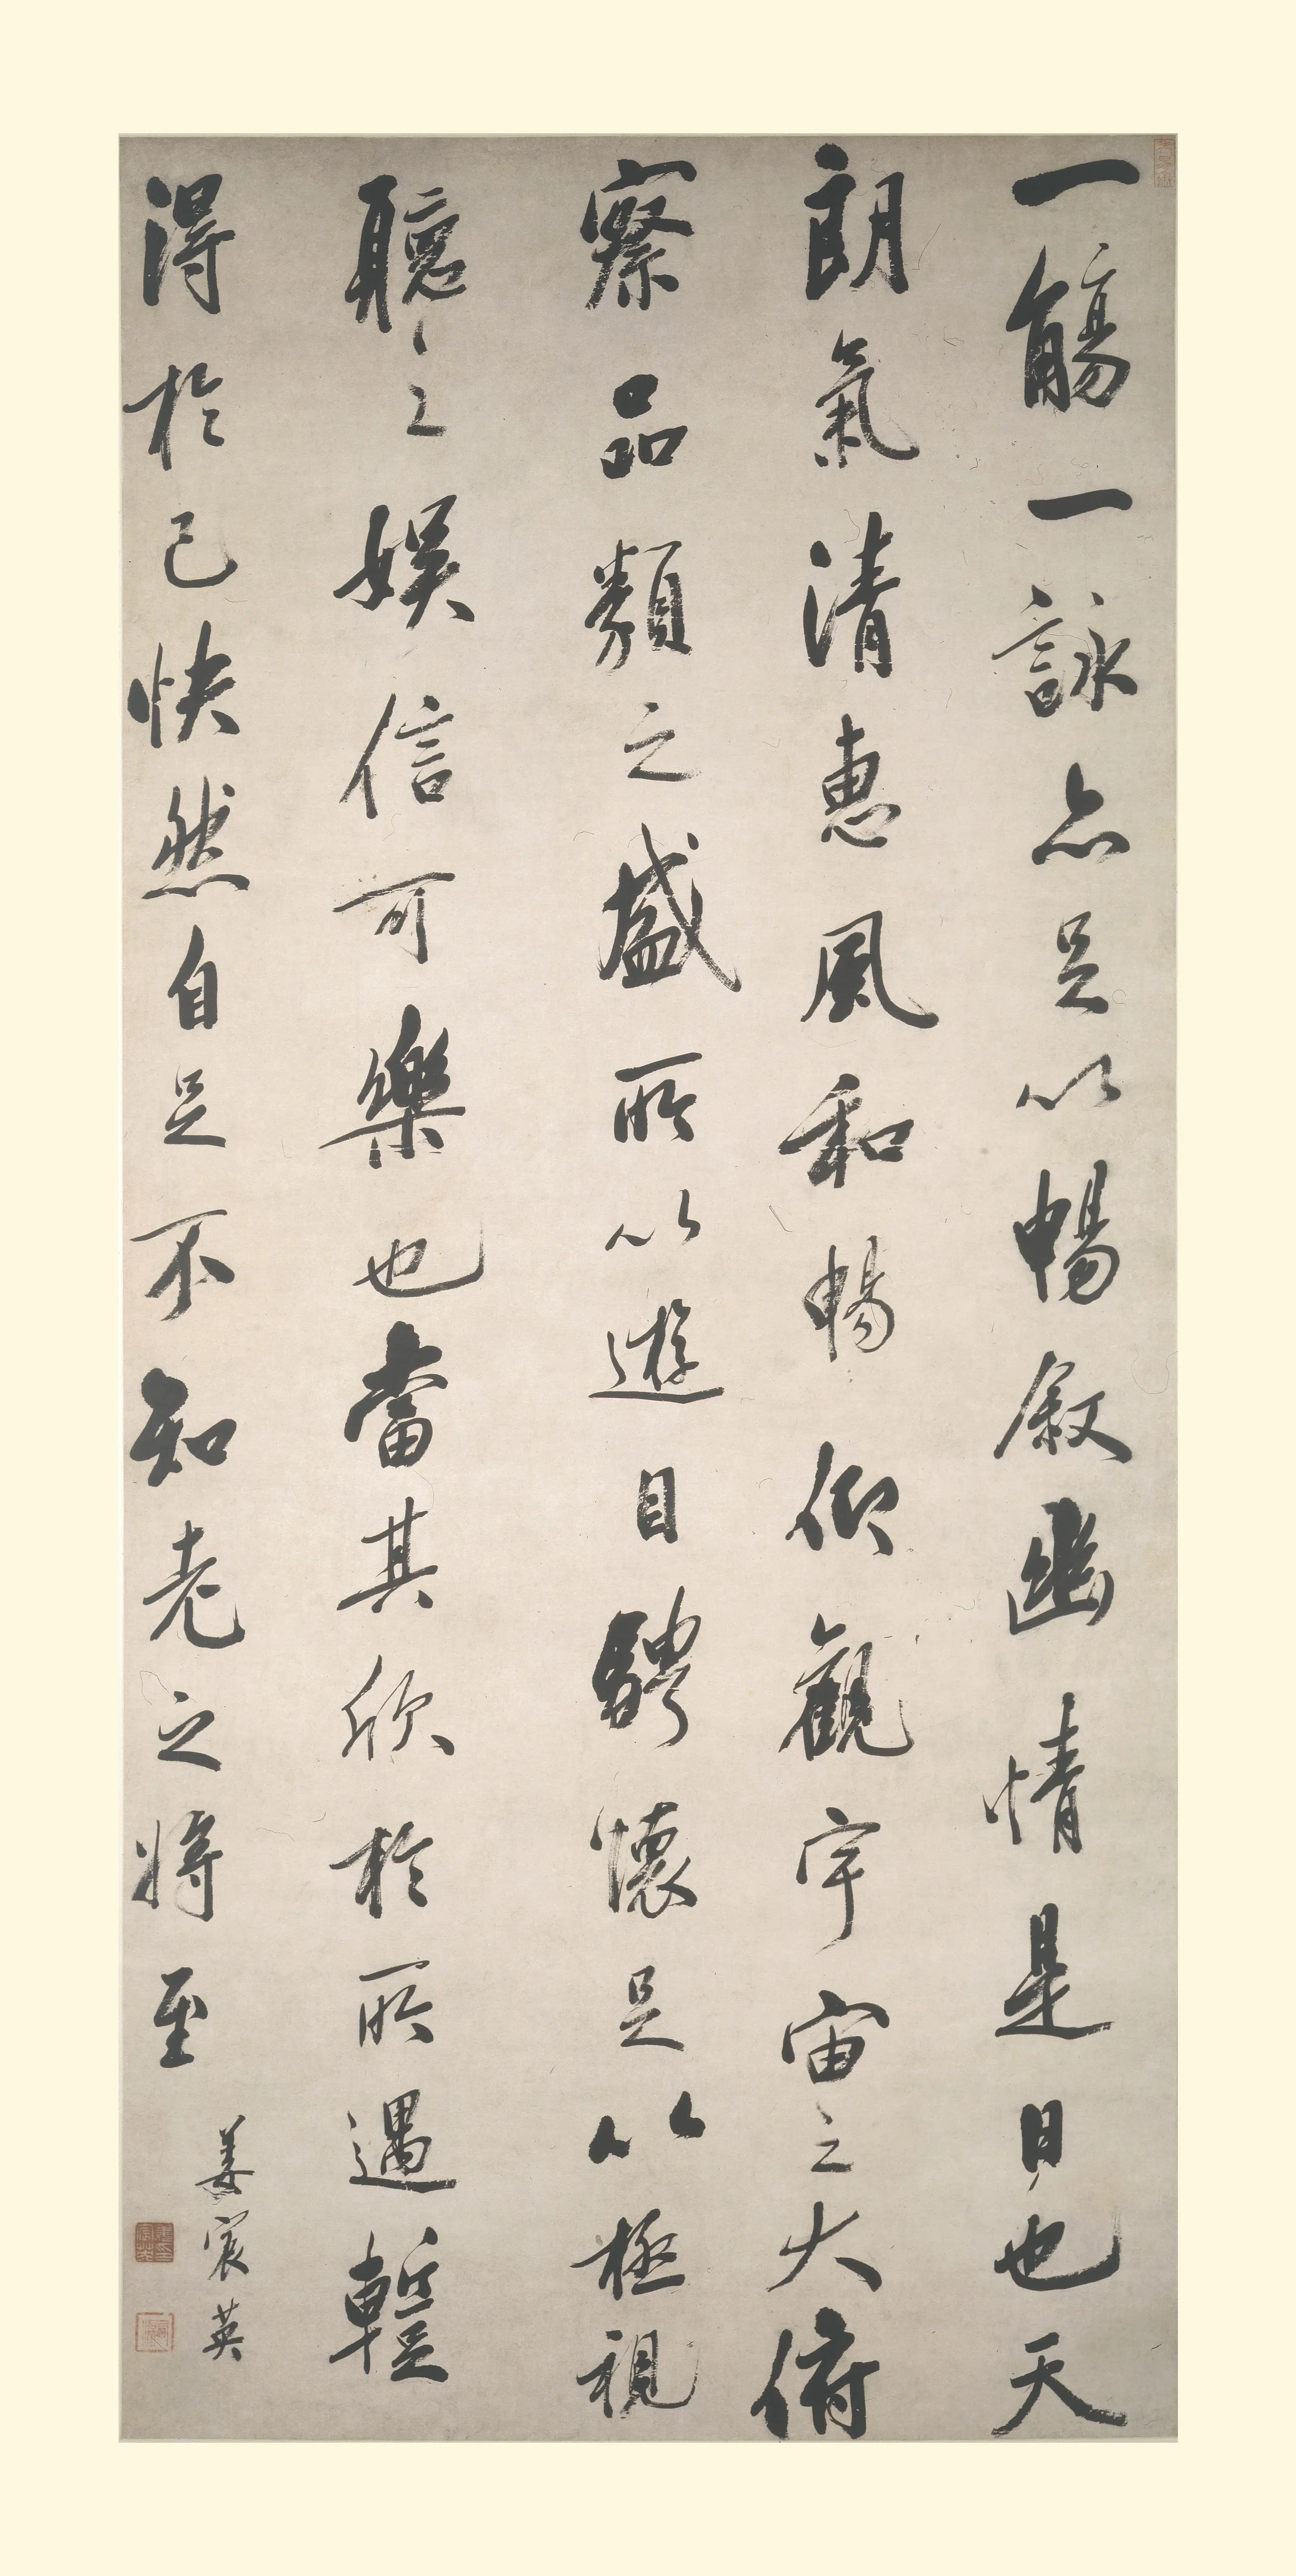 一觴一詠亦足以暢敘幽情是日也天
朗氣清惠風和暢仰觀宇宙之大俯
察品類之盛所以遊目騁懷足以極視
聽之娛信可樂也當其欣於所遇蹔
得於己快然自足不知老之將至
姜宸英